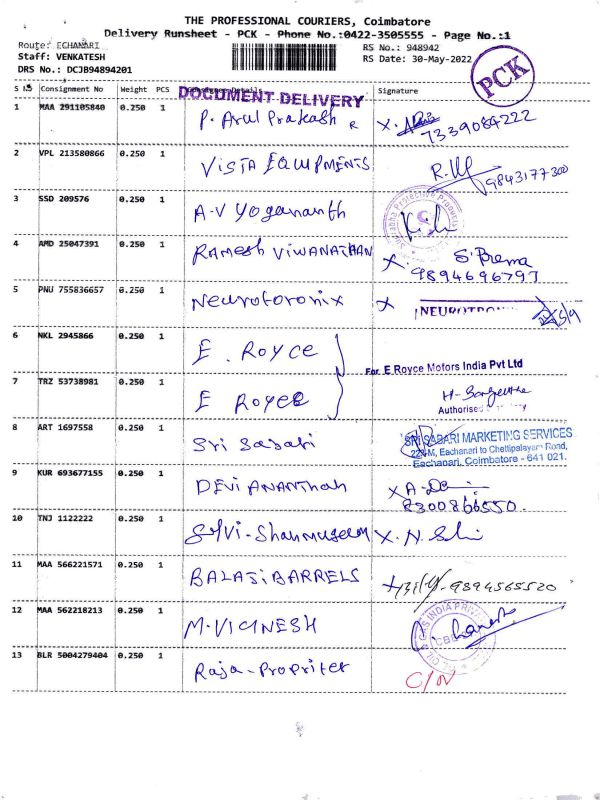 THE PROFESSIONAL COURIERS, Coimbatore
Delivery Runsheet - PCK - Phone No.:0422-3505555 - Page No.:1
Route: ECHANARI
RS No.: 948942
Staff: VENKATESH
RS Date: 30-May-2022
DRS No.: DCJB94894201
PCK
S No Consignment No Weight PCS Consignee Details Signature
DOCUMENT DELIVERY
1 MAA 291105840 0.250 1 P. Arul Prakash R X
7339084222
2 VPL 213580866 0.250 1 VISTA EQUIPMENTS
9843177300
3 SSD 209576 0.250 1 A-V Yogananth
4 AMD 25047391 0.250 1 RAMESH VIWANATHAN X S. Prema
9894696797
5 PNU 755836657 0.250 1 Neurotoronix X NEUROTRON
6 NKL 2945866 0.250 1 E. ROYCE
For E.Royce Motors India Pvt Ltd
7 TRZ 53738981 0.250 1 E ROYCE
Authorised
8 ART 1697558 0.250 1 Sri Sabari
SRI SABARI MARKETING SERVICES
Eachanari to Chettipalayam Road,
Eachanari, Coimbatore - 641 021.
9 KUR 693677155 0.250 1 DEVI ANANTHAH X A-
8300866550.
10 TNJ 1122222 0.250 1 Selvi-Shanmugam X. N.
11 MAA 566221571 0.250 1 BALAJI BARRELS 9894565520
12 MAA 562218213 0.250 1 M. VIGNESH
13 BLR 5004279404 0.250 1 Raja-Propriter
C/N